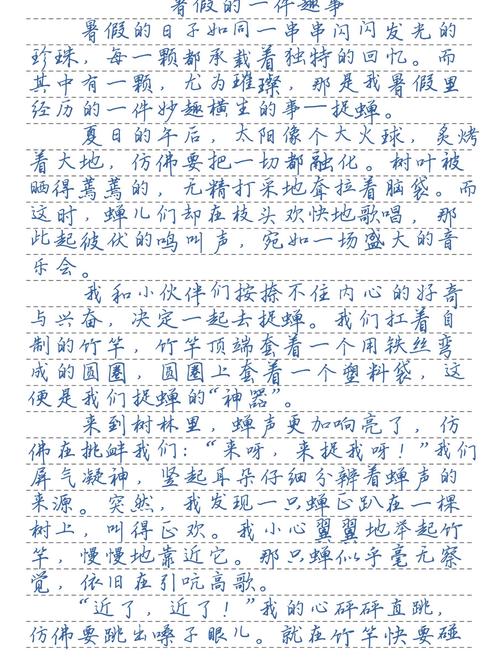 暑假的一件趣事
暑假的日子如同一串串闪闪发光的
珍珠，每一颗都承载着独特的回忆。而
其中有一颗，尤为璀璨，那是我暑假里
经历的一件妙趣横生的事—捉蝉。
夏日的午后，太阳像个大火球，炙烤
着大地，仿佛要把一切都融化。树叶被
晒得蔫蔫的，无精打采地耷拉着脑袋。而
这时，蝉儿们却在枝头欢快地歌唱，那
此起彼伏的鸣叫声，宛如一场盛大的音
乐会。
我和小伙伴们按捺不住内心的好奇
与兴奋，决定一起去捉蝉。我们扛着自
制的竹竿，竹竿顶端套着一个用铁丝弯
成的圆圈，圆圈上套着一个塑料袋，这
便是我们捉蝉的“神器”。
来到树林里，蝉声更加响亮了，仿
佛在挑衅我们：“来呀，来捉我呀！”我们
屏气凝神，竖起耳朵仔细分辨着蝉声的
来源。突然，我发现一只蝉正趴在一棵
树上，叫得正欢。我小心翼翼地举起竹
竿，慢慢地靠近它。那只蝉似乎毫无察
觉，依旧在引吭高歌。
“近了，近了！”我的心砰砰直跳，
仿佛要跳出嗓子眼儿。就在竹竿快要碰